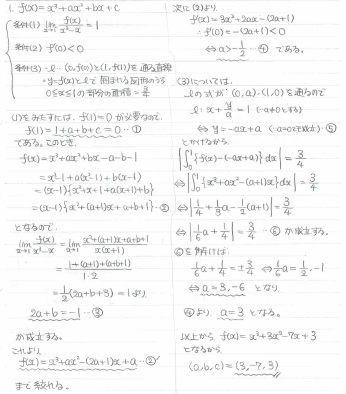 1. f(x)=x³+ax²+bx+c
条件(1) lim_{x→1} f(x)/(x²-x) = 1
条件(2) f'(0)<0
条件(3) … l … (0, f(0))と(1, f(1))を通る直線
… y=f(x)とlで囲まれる図形のうち
0≦x≦1の部分の面積 = 3/4
(1)をみたすには、f(1)=0が必要なので、
f(1)=1+a+b+c=0 … ①
である。このとき、
f(x)=x³+ax²+bx-a-b-1
=x³-1+a(x²-1)+b(x-1)
=(x-1){x²+x+1+a(x+1)+b}
=(x-1){x²+(a+1)x+a+b+1} … ②
となるので、
lim_{x→1} f(x)/(x²-x) = lim_{x→1} (x²+(a+1)x+a+b+1)/x
2a+b=-1 … ③
が成立する。
これより、
f(x)=x³+ax²-(2a+1)x+a … ②'
まで絞れる。
次に(2)より、
f'(x)=3x²+2ax-(2a+1)
∴ f'(0)=-(2a+1)<0
⇔ a>-1/2 … ④ である。
(3)については、
lの式が (0, a)・(1, 0)を通るので
l: x+y/a=1 (∵a≠0とする)
⇔ y=-ax+a (∵a=0でも成立) … ⑤
とかけるから、
|∫₀¹{f(x)-(-ax+a)}dx|=3/4
⇔ |∫₀¹{x³+ax²-(a+1)x}dx|=3/4
⇔ |1/4+1/3a-1/2(a+1)|=3/4
⇔ |1/6a+1/4|=3/4 … ⑥ が成立する。
⑥を解けば
⇔ a=3, -6 となり、
④より、a=3となる。
以上から、f(x)=x³+3x²-7x+3
となるから、
(a, b, c)=(3, -7, 3)